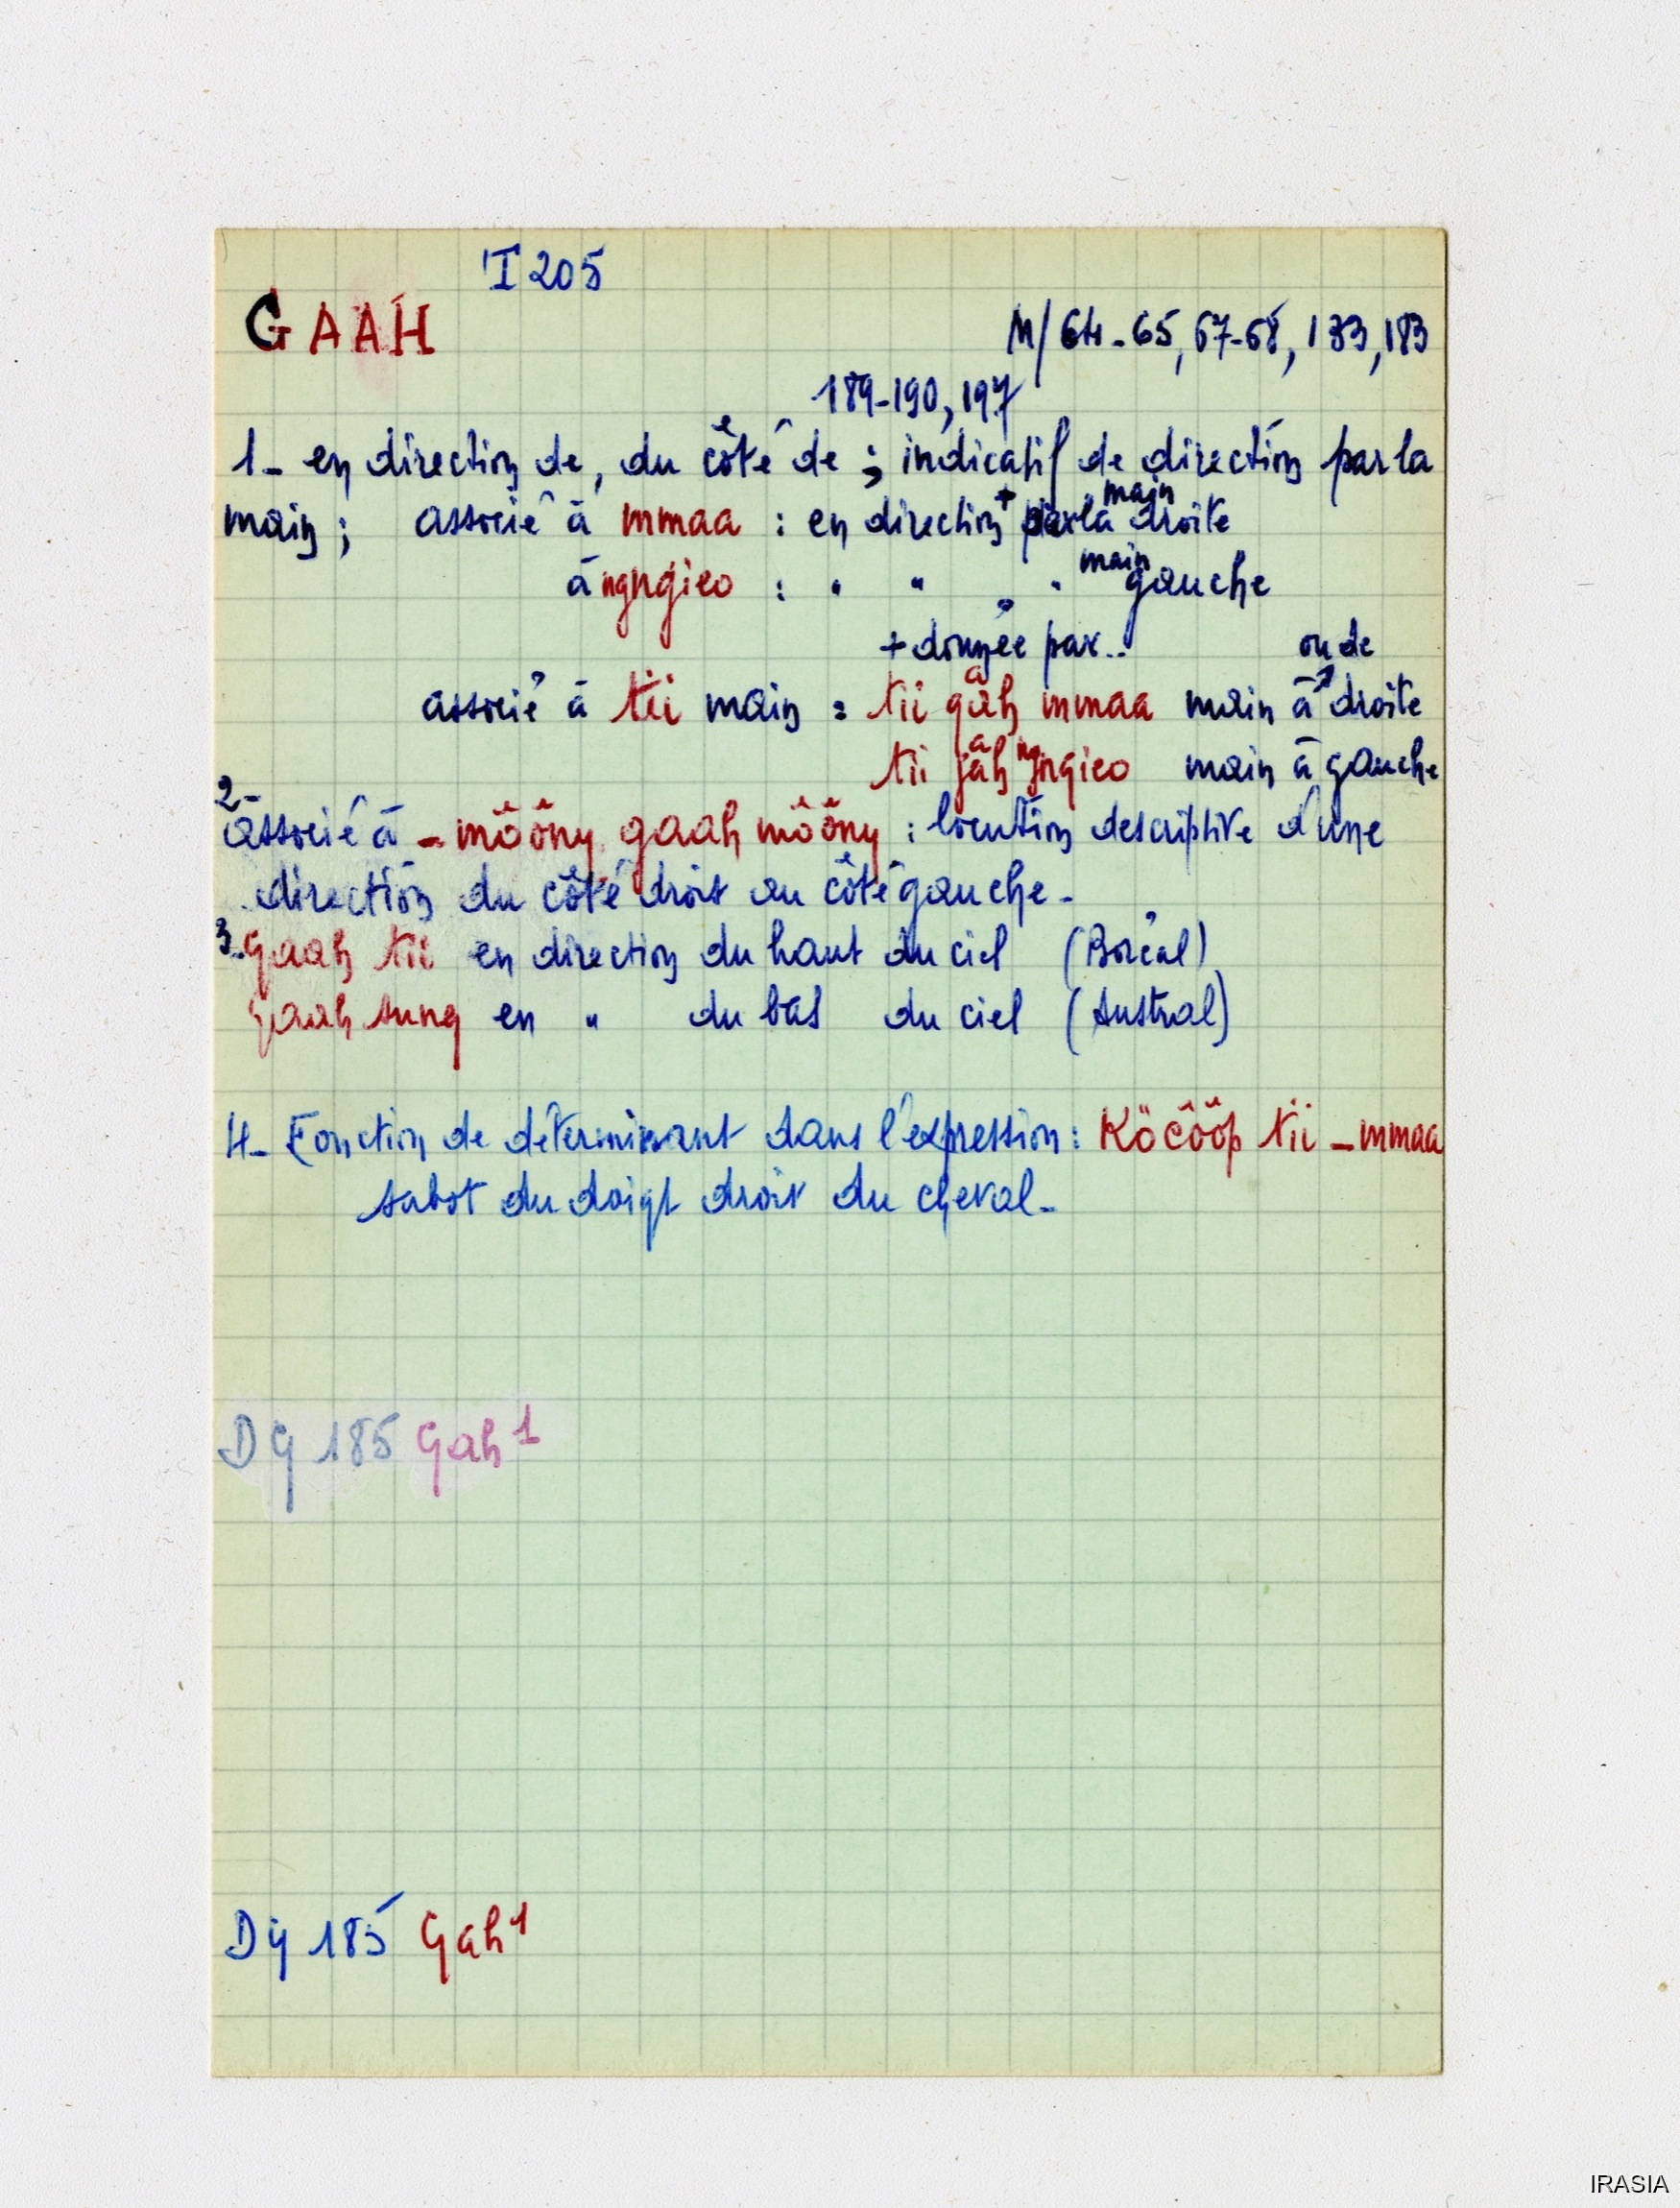 I 205
GAAH
M/ 64-65, 67-68, 133, 183
189-190, 197
1- en direction de, du côté de ; indicatif de direction par la
main ; associé à mmaa : en direction + par la main droite
à ngngieo : " " " " main gauche
+ donnée par.. ou de
associé à tii main = tii gaah mmaa main à droite
tii gaah ngngieo main à gauche
2- associé à - môôny gaah môôny : locution descriptive d'une
direction du côté droit au côté gauche -
3- gaah tii en direction du haut du ciel (Boréal)
gaah sung en " du bas du ciel (Austral)
4- Fonction de déterminant dans l'expression : Köcôôp tii - mmaa
sabot du doigt droit du cheval -
DG 185 Gah 1
DG 185 Gah 1
IRASIA